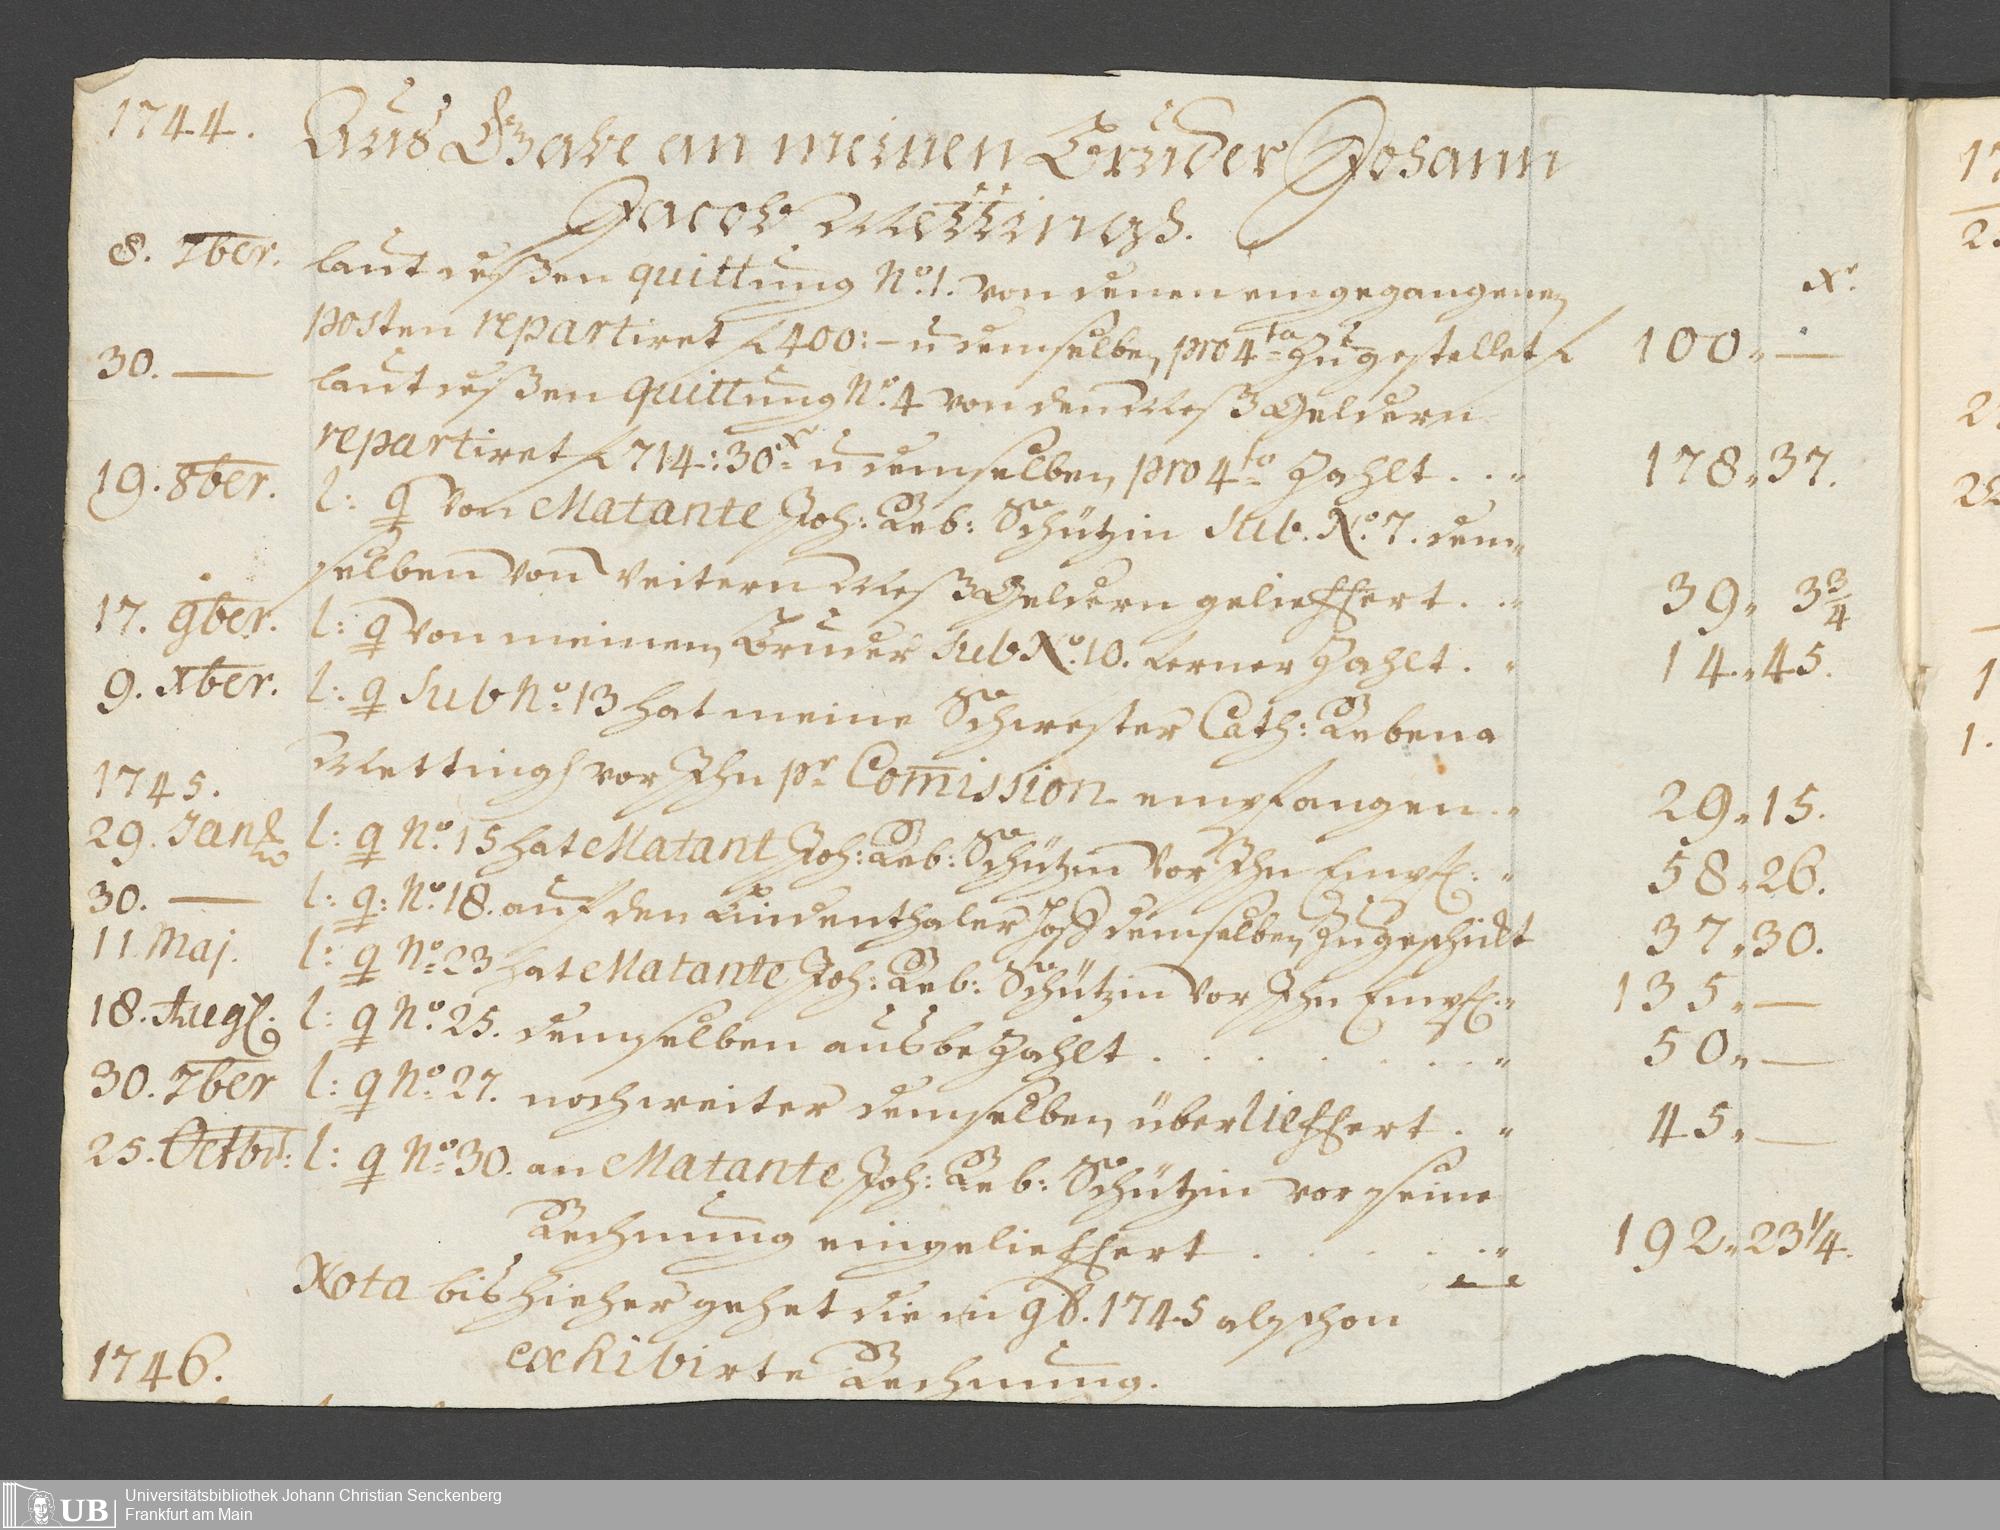 1744. Aus Gabe an meinen Bruder Johann
Jacob Mettingh.
8. 7ber. laut deßen quittung No. 1. von denen eingegangenen xr.
posten repartiret f 400:– u demselben pro 4ta Zugestellet f 100 „ —
30. — laut deßen quittung No. 4 von den Meß Geldern
repartiret f 714: 30 xr u demselben pro 4ta Zahlt . . „ 178 „ 37.
19. 8ber. l: q von Matante Joh: Reb: Schützin sub. No. 7. dem-
selben von Weitern Meß Geldern gelieffert . . „ 39 „ 3 3/4
17. 9ber. l: q von meinem Bruder sub No. 10. ferner Zahlt . „ 14 „ 45.
9. Xber. l: q sub No. 13 hat meine Schwester Cath: Rebena
Mettingh vor Ihn pr Comission empfangen . . „ 29 „ 15.
1745.
29. Jan. l: q No. 15 hat Matant Joh: Reb: Schützin vor Ihn Empf: „ 58 „ 26.
30. — l: q: No. 18. auf den Lindenthaler demselben Zugeschickt 37 „ 30.
11 Maj. l: q No. 23 hat Matante Joh: Reb: Schützin vor Ihn Empf: „ 135 „ —
18. Aug. l: q No. 25. demselben ausbeZahlt . . . . . . . „ 50 „ —
30. 7ber l: q No. 27. noch weiter demselben überlieffert . „ 45 „ —
25. Octbr: l: q No. 30. an Matante Joh: Reb: Schützin vor seine
Rechnung eingelieffert . . . . . „ 192 „ 23 1/4.
Nota bis hieher gehet die in 9b. 1745 alschon
exhibirte Rechnung.
1746.
UB Universitätsbibliothek Johann Christian Senckenberg
Frankfurt am Main